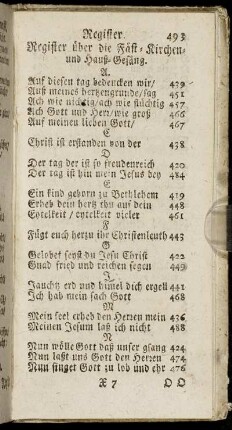 Register. 493
Register über die Fäst- Kirchen-
und Hauß-Gesäng.
A.
Auf diesen tag bedencken wir/ 429
Auß meines hertzengrunde/sag 451
Ach wie nichtig/ach wie flüchtig 457
Ach Gott und Herr/wie groß 466
Auf meinen lieben Gott/ 467
C
Christ ist erstanden von der 438
D
Der tag der ist so freudenreich 420
Der tag ist hin mein Jesus bey 484
E
Ein kind geborn zu Bethlehem 419
Erheb dein hertz thu auf dein 448
Eytelkeit / eytelkeit vieler 461
F
Fügt euch herzu ihr Christenleuth 443
G
Gelobet seyst du Jesu Christ 422
Gnad fried und reichen segen 449
J
Jauchtz erd und himel dich ergell 441
Ich hab mein sach Gott 468
M
Mein seel erheb den Herren mein 436
Meinen Jesum laß ich nicht 488
N
Nun wölle Gott daß unser gsang 424
Nun laßt uns Gott den Herren 474
Nun singet Gott zu lob und ehr 476
X 7 O O